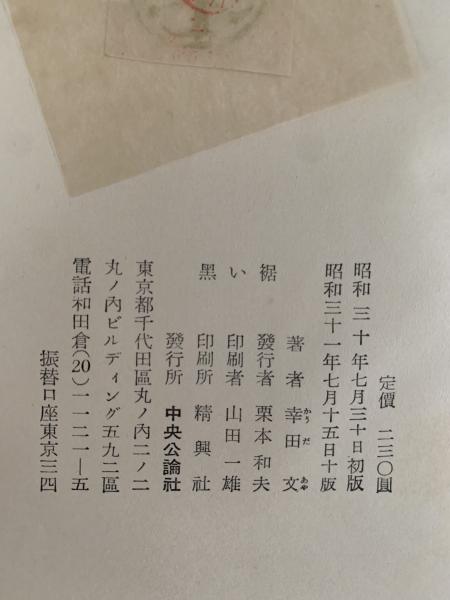 定價 二三〇圓
昭和三十年七月三十日初版
昭和三十一年七月十五日十版
著者 幸田文
かうだ あや
黑い裾
發行者 栗本和夫
印刷者 山田一雄
印刷所 精興社
發行所 中央公論社
東京都千代田區丸ノ內二ノ二
丸ノ內ビルディング五九二區
電話和田倉(20)一一二一—五
振替口座東京三四